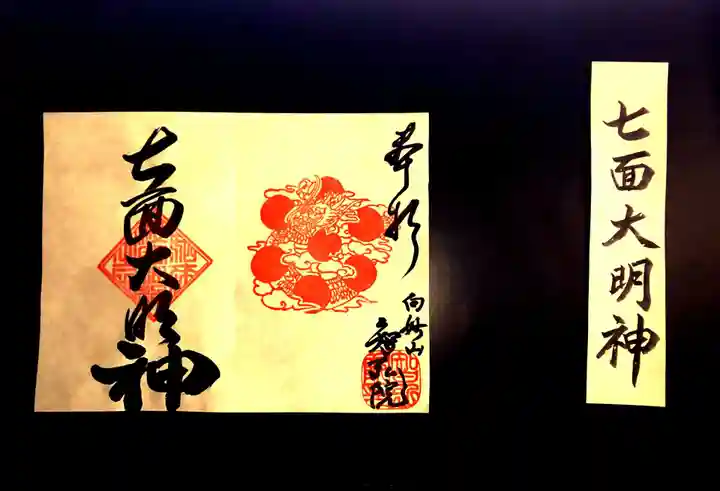 七面大明神
奉拝
向妙山
智弘院
七面大明神